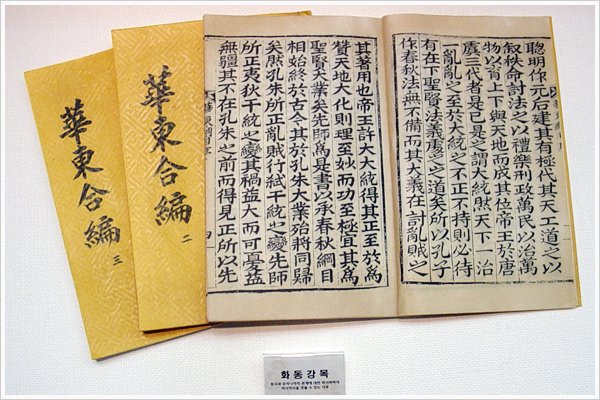 聰明作元后建其有極代其天工道之以
叙秩命討法之以禮樂刑政萬民以治萬
物以育上下與天地而成其位帝王於唐
虞三代者是已是之謂大統肰天下治
一亂亂之至於大統之不正不持則必待
有在下聖賢法義處之之道矣所以孔子
作春秋法無不備而其大義在討亂賊之
其著用也帝王許大大統得其正至於爲
贊天地大化則理至妙而功至極宜其爲
聖賢大業矣先師爲是書以承春秋綱目
相始終於古今其於孔朱大業殆將同歸
矣肰孔朱所正亂賊行弑干統之變先師
所正夷狄干統之變其禍益大而可憂益
無疆其不在孔朱之前而得見正所以先
四
華東合編 二
華東合編 三
화동강목
중국과 우리나라의 관계에 대한 화서학파의
역사의식을 엿볼 수 있는 자료